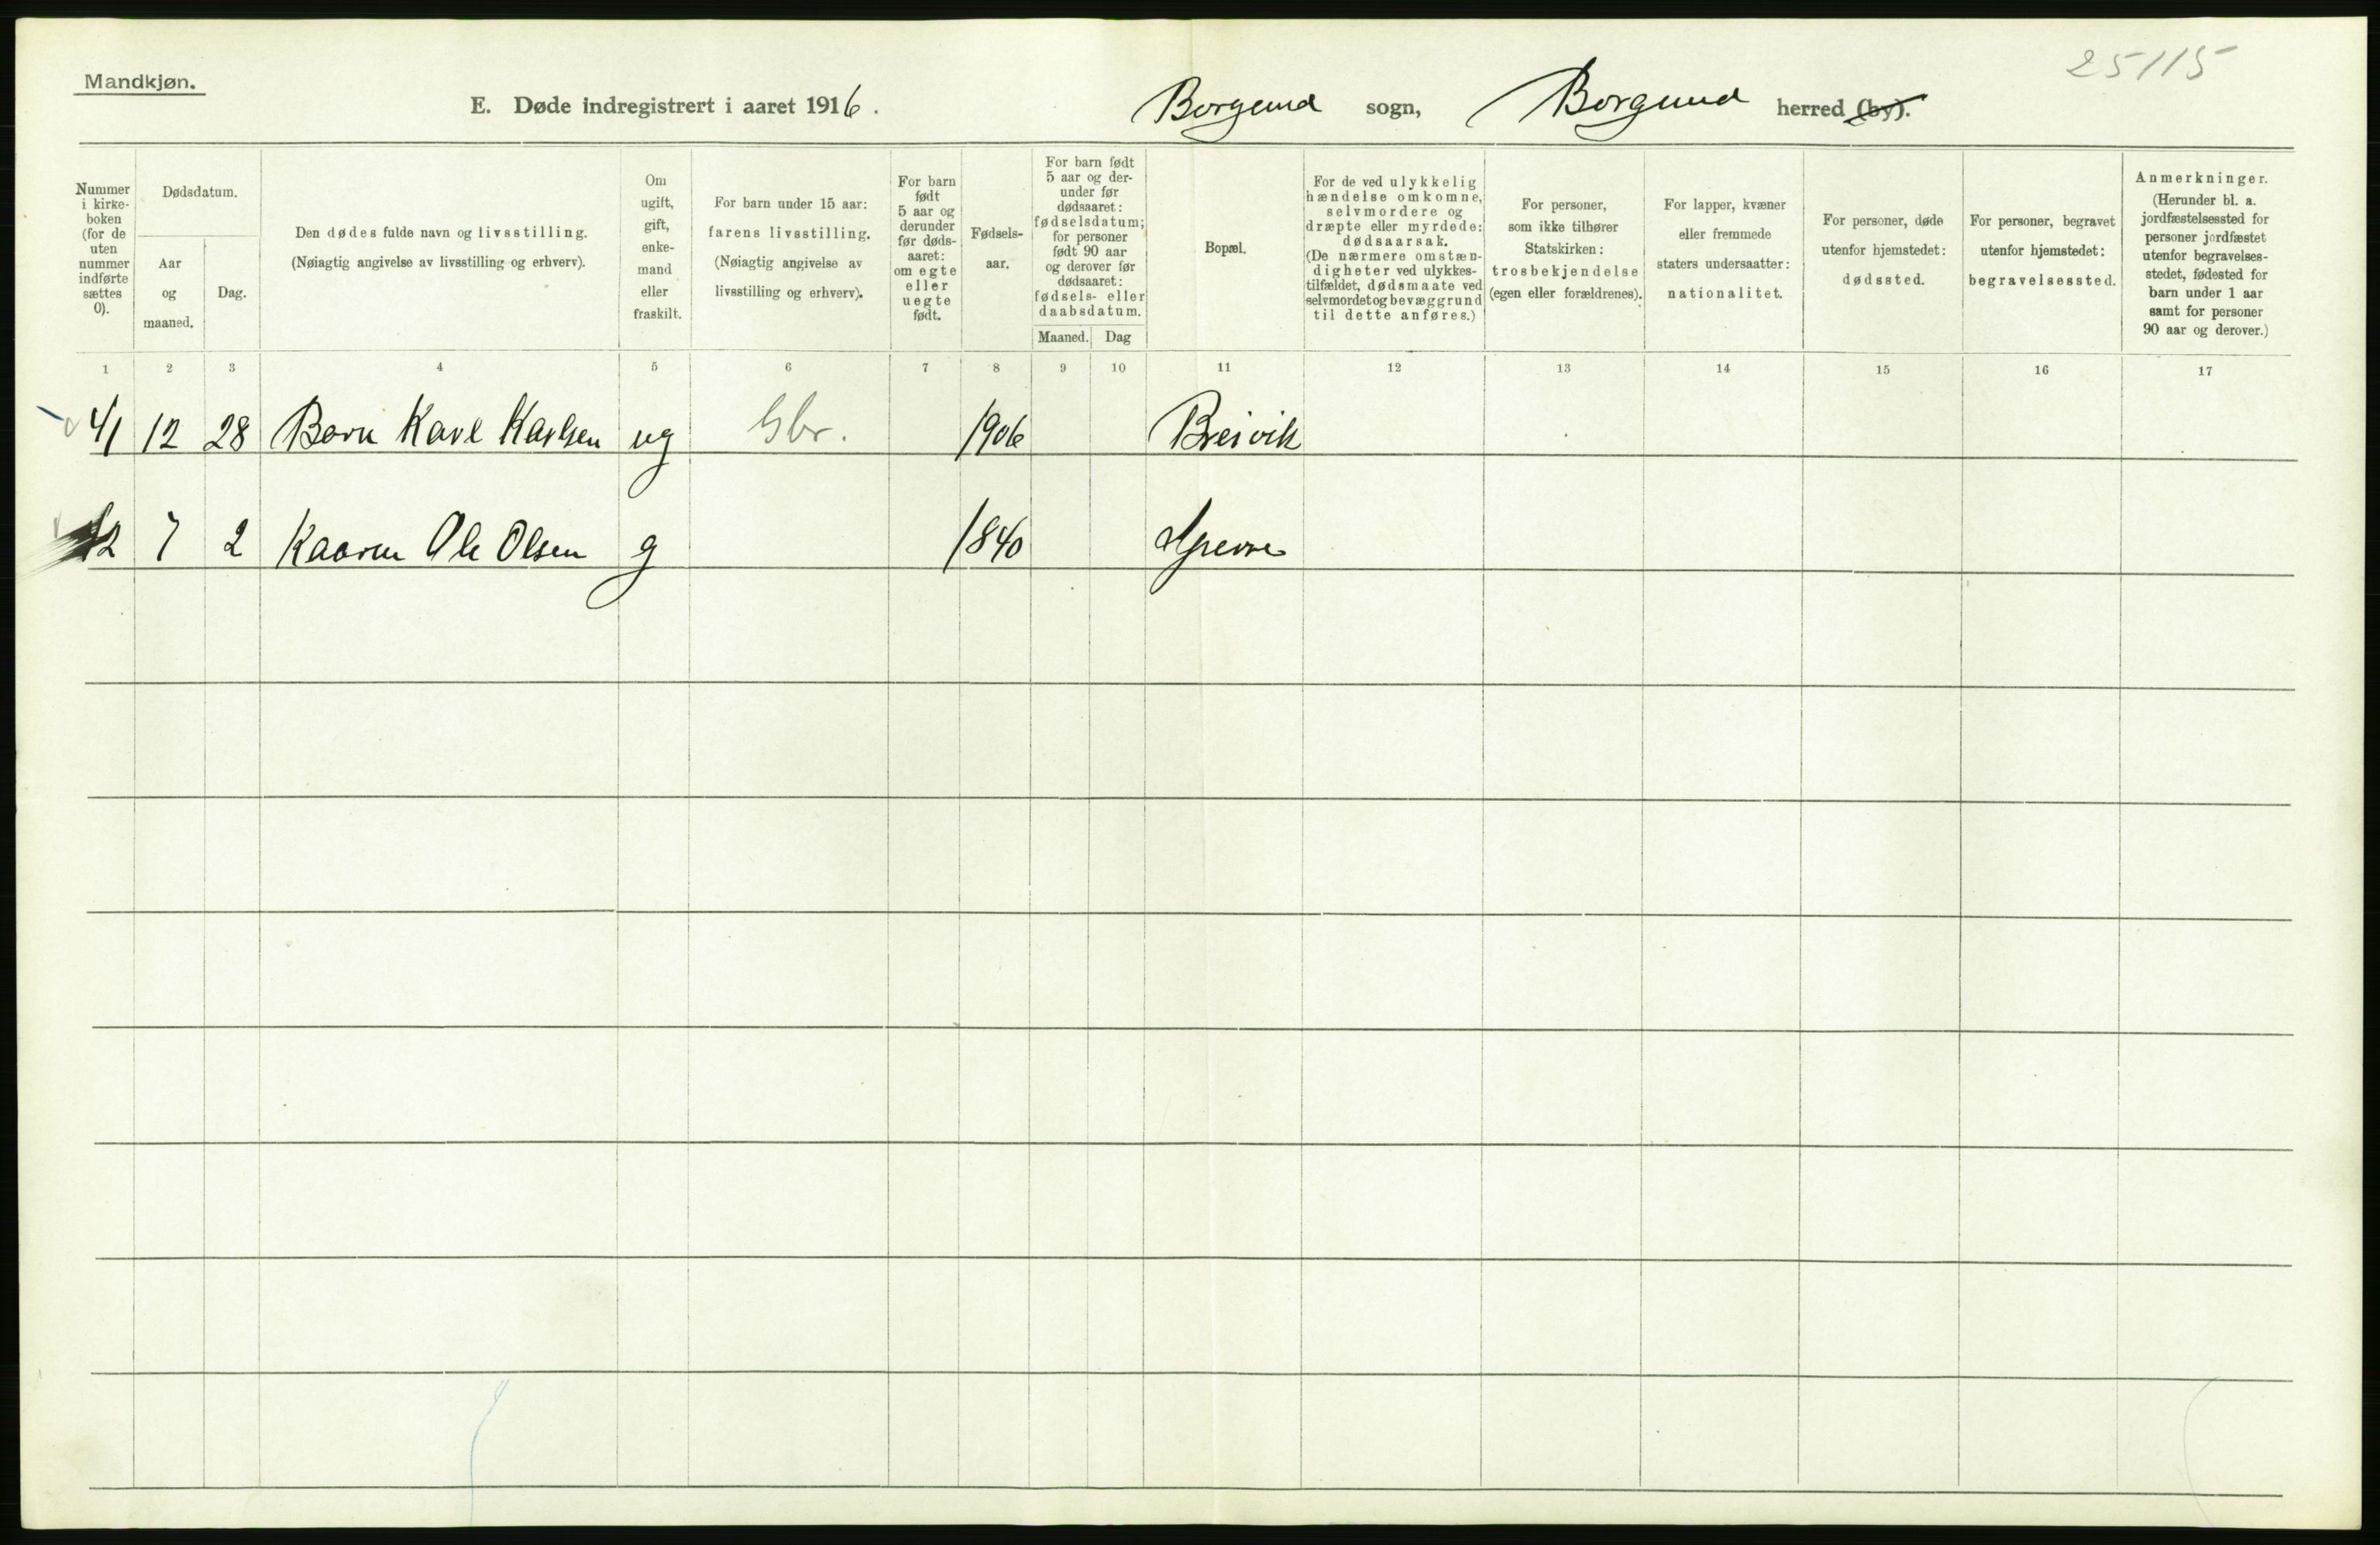 25115
Mandkjøn.
E. Døde indregistrert i aaret 1916. Borgund sogn, Borgund herred (by).
Nummer i kirke-boken (for de uten nummer indførte sættes 0).
Dødsdatum.
Aar og maaned.
Dag.
Den dødes fulde navn og livsstilling.
(Nøiagtig angivelse av livsstilling og erhverv).
Om ugift, gift, enke-mand eller fraskilt.
For barn under 15 aar:
farens livsstilling.
(Nøiagtig angivelse av
livsstilling og erhverv).
For barn født 5 aar og derunder før døds-aaret: om egte eller uegte født.
Fødsels-aar.
For barn født 5 aar og der-under før dødsaaret: fødselsdatum; for personer født 90 aar og derover før dødsaaret: fødsels- eller daabsdatum.
Maaned. Dag
Bopæl.
For de ved ulykkelig hændelse omkomne, selvmordere og dræpte eller myrdede: dødsaarsak. (De nærmere omstæn-digheter ved ulykkes-tilfældet, dødsmaate ved selvmordet og bevæggrund til dette anføres.)
For personer, som ikke tilhører Statskirken: trosbekjendelse (egen eller forældrenes).
For lapper, kvæner eller fremmede staters undersaatter: nationalitet.
For personer, døde utenfor hjemstedet: dødssted.
For personer, begravet utenfor hjemstedet: begravelsessted.
Anmerkninger. (Herunder bl. a. jordfæstelsessted for personer jordfæstet utenfor begravelses-stedet, fødested for barn under 1 aar samt for personer 90 aar og derover.)
1 2 3 4 5 6 7 8 9 10 11 12 13 14 15 16 17
41 12 28 Barn Karl Karlsen ug Gbr. 1906 Breivik
42 7 2 Kaaren Ole Olsen g 1840